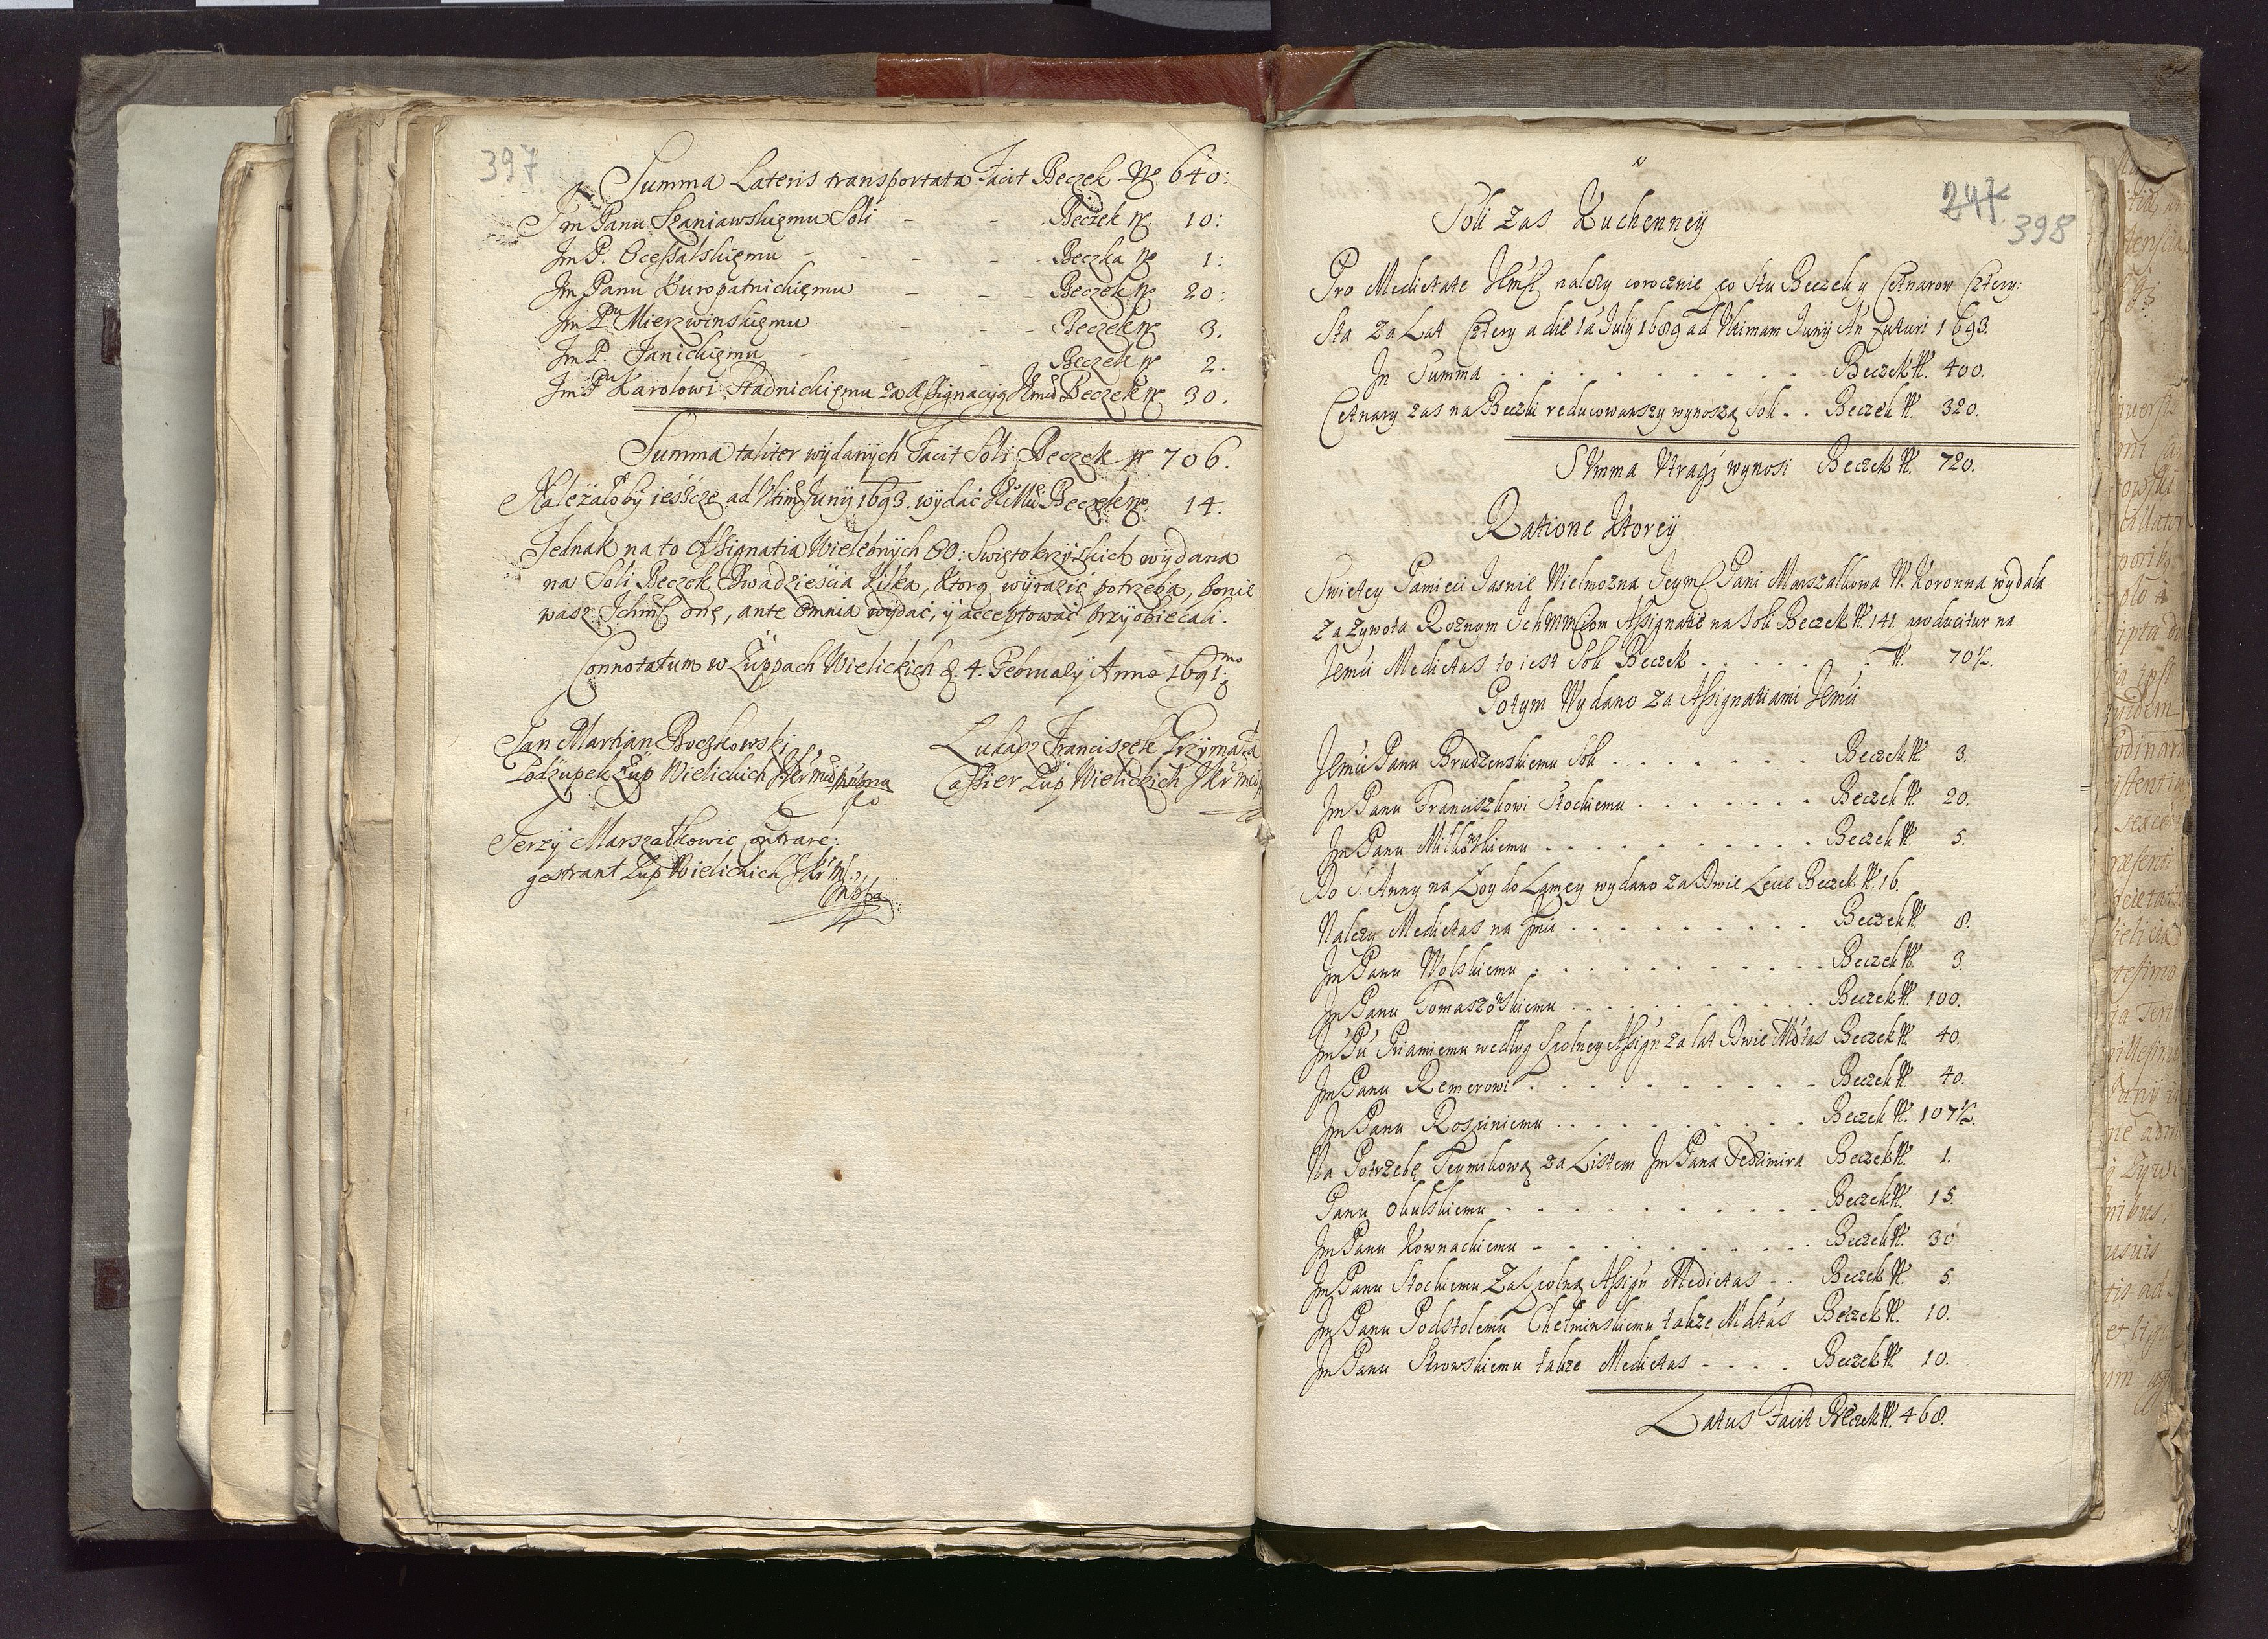 397
Summa Lateris transportata Facit Beczek No 640:
Jm Panu Szaniawskięmu Soli - - Beczek No 10:
Jm P. Ocessalskięmu - - - - Beczka No 1:
Jm Panu Kuropatnickięmu - - - Beczek No 20:
Jm Pnu Mierzwinskięmu - - - Beczek No 3.
Jm P. Janickięmu - - - Beczek No 2.
Jm Pnu Karolowi Stadnickięmu za Assignacyą Beczek No 30.
Summa taliter wydanych Facit Soli Beczek No 706.
Należałoby ieszcze ad Junij 1693. wydać Beczek No. 14.
Jednak na to Assignatia Wielebnych OO: Swiętokrzyskich wydana
na Soli Beczek Dwadzieścia kilka, ktorą wyrazić potrzeba, ponie
waz Ichmść onę, ante omnia wydać, y acceptować przyobiecali.
Connotatum w Zuppach Wielickich d. 4. Februarij Anno 1691mo
Jan Martian Boczkowski
Podzupek Zup Wielickich JKrMci
Łukasz Franciszek Grzymała
Cassier Zup Wielickich JKrMci
Jerzy Marszałkowic contrare:
gestrant Zup Wielickich JKrM.
mppa
247.
398
Soli zas Kuchenney
Pro Medietate Jemści należy corocznie po Stu Beczek y Cetnarow Cztery:
sta za Lat Cztery a die 1a July 1689 ad Vltimam Junij An. futuri 1693.
In Summa . . . . . Beczek No. 400.
Cetnary zas na Beczki reducowawszy wynoszą Soli - . Beczek No. 320.
Summa Vtraqz wynosi Beczek No. 720.
Ratione Ktorey
Swiętey Pamięci Jasnie Wielmozna Jeymść Pani Marszałkowa W. Koronna wydała
za zywota Roznym Ichmmściom Assignatie na Soli Beczek No. 141. producitur na
Jemśći Medietas to iest Soli Beczek . . . . No. 70½.
Potym Wydano za Assignatiami Jemści
Jemści Panu Brudzenskiemu Soli . . . . . Beczek No. 3.
Jm Panu Franciszkowi Stockiemu . . . . . Beczek No. 20.
Jm Panu Miłkowskiemu . . . . . Beczek No. 5.
Do S. Anny na Łoy do Lampy wydano za Dwie Lecie Beczek No. 16.
Należy Medietas na Jmści . . . . . Beczek No. 8.
Jm Panu Wolskiemu . . . . . Beczek No. 3.
Jm Panu Tomaszowskiemu . . . . . Beczek No. 100.
Jm Pu Priamiemu według Spolney Assign za lat Dwie Mdtas Beczek No. 40.
Jm Panu Remerowi . . . . . Beczek No. 40.
Jm Panu Rospiniemu . . . . . Beczek No. 107½.
Na Potrzebę Seymikową za Listem Jm Pana Fedzimira Beczek No. 1.
Panu Okulskiemu . . . . . Beczek No. 15.
Jm Panu Kownackiemu . . . . . Beczek No. 30.
Jm Panu Stockiemu Za Spolną Assign Medietas . . Beczek No. 5.
Jm Panu Podstolemu Chełminskiemu takze Mdtas Beczek No. 10.
Jm Panu Strowskiemu takze Medietas - . . . Beczek No. 10.
Latus Facit Beczek No. 468.